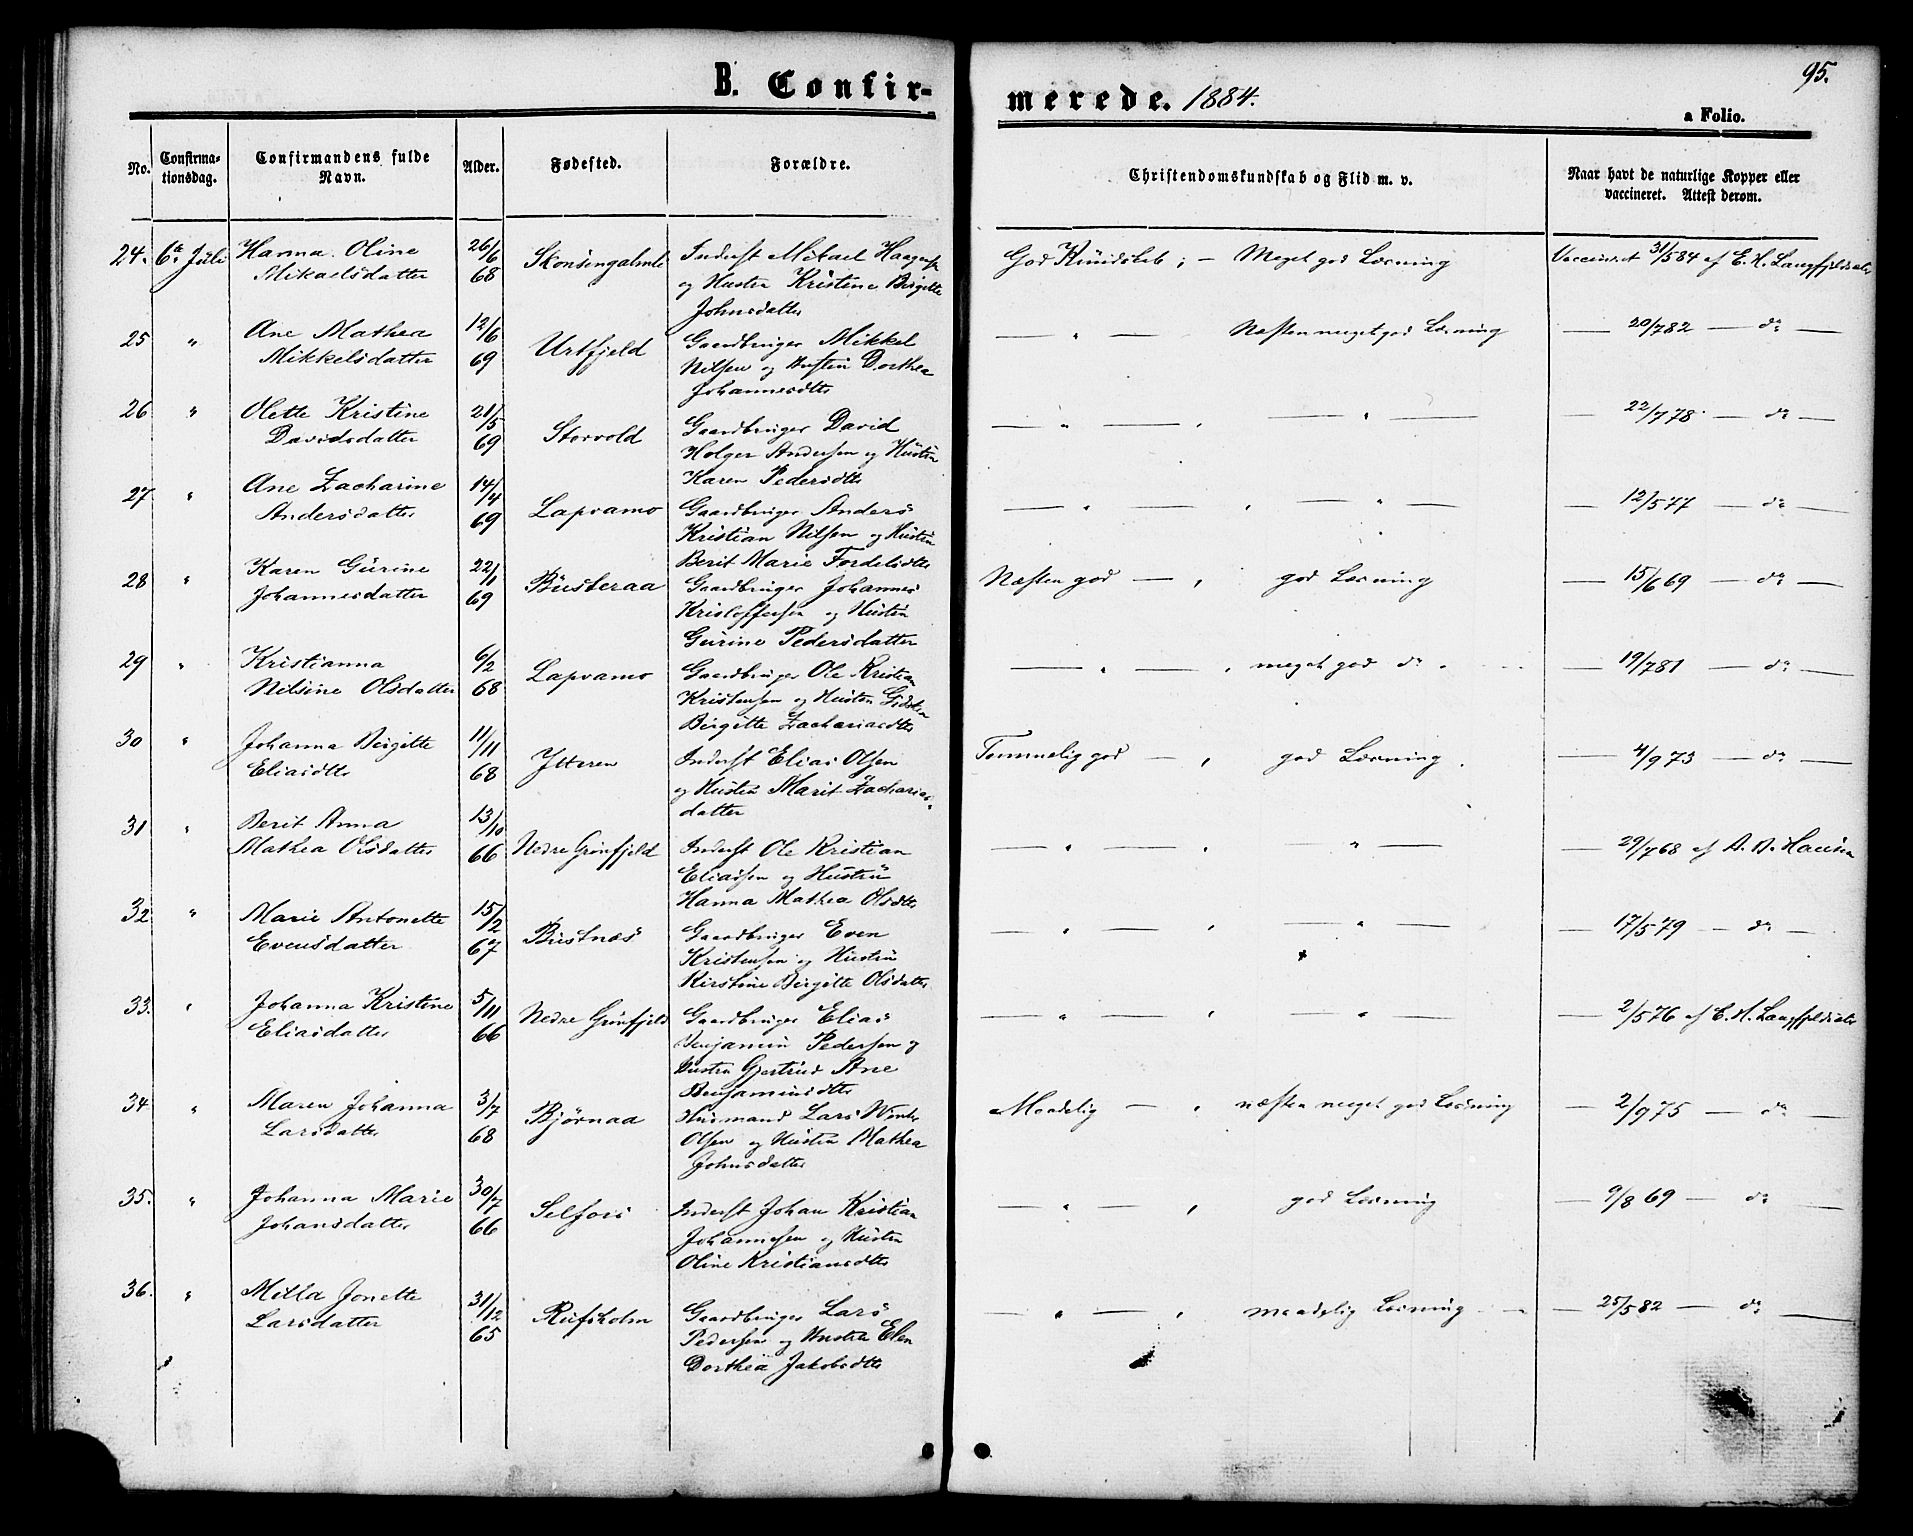 B. Confir-
merede. 1884.
95.
a Folio.
No.
Confirma-
tionsdag.
Confirmandens fulde
Navn.
Alder.
Fødested.
Forældre.
Christendomskundskab og Flid m. v.
Naar havt de naturlige Kopper eller
vaccineret. Attest derom.
24. 6te Juli Hanna Oline 26/6 Inderst Mikael
Mikaelsdatter 68 og Hustru Kristine Birgitte
Johnsdatter
God Kundskab; – Meget god Læsning Vaccineret 31/5 84 af E. H.
25 " Ane Mathea 12/6 Urtfjeld Gaardbruger Mikkel
Mikkelsdatter 69 Nilsen og Hustru Dorthea
Johannesdtr
— " — Næsten meget god Læsning — 20/7 82 — do —
26 " Olette Kristine 21/5 Storvold Gaardbruger David
Davidsdatter 69 Holger Andersen og Hustru
Karen Pedersdtr
— " — , — " — — 22/7 78 — do —
27 " Ane Zacharine 14/4 Lapvamo Gaardbruger Anders
Andersdatter 69 Kristian Nilsen og Hustru
Berit Marie Fordelsdtr
— " — , — " — — 12/5 77 — do —
28 " Karen Gurine 22/1 Busteraa Gaardbruger Johannes
Johannesdatter 69 Kristoffersen og Hustru
Gurine Pedersdatter
Næsten god — , god Læsning — 15/6 69 — do —
29 " Kristianna 6/2 Lapvamo Gaardbruger Ole Kristian
Nilsine Olsdatter 68 Kristensen og Hustru Gidsken
Birgitte Zachariasdtr
— " — , meget god do — 19/7 81 — do —
30 " Johanna Birgitte 11/11 Ytteren Inderst Elias Olsen
Eliasdtr 68 og Hustru Marit Zacharias-
datter
Temmelig god — , god Læsning. — 4/9 73 — do —
31 " Berit Anna 13/10 Nedre Grønfjeld Inderst Ole Kristian
Mathea Olsdatter 66 Eliassen og Hustru
Hanna Mathea Olsdtr
— " — , — " — — 29/7 68 af A. B. Hansen
32 " Marie Antonette 15/2 Bustnæs Gaardbruger Even
Evensdatter 67 Kristensen og Hustru
Kirstine Birgitte Olsdatter
— " — , — " — — 17/5 79 — do —
33. " Johanna Kristine 5/11 Nedre Grønfjeld Gaardbruger Elias
Eliasdatter 66 Benjamin Pedersen og
Hustru Gjertrud Ane
Benjaminsdtr
— " — , — " — — 2/5 76 af E. H.
34 " Maren Johanna 3/7 Bjørnaa Husmand Lars
Larsdatter 68 Olsen og Hustru Mathea
Johnsdatter
Maadelig — , næsten meget god Læsning — 2/9 75 — do —
35. " Johanna Marie 30/7 Selfors Inderst Johan Kristian
Johansdatter 66 Johannesen og Hustru
Oline Kristiansdtr
— " — , god Læsning — 9/8 69 — do —
36. " Milla Jonette 31/12 Rufsholm Gaardbruger Lars
Larsdatter 65 Pedersen og Hustru Elen
Dorthea Jakobsdtr
— " — , maadelig Læsning — 25/5 82 — do —